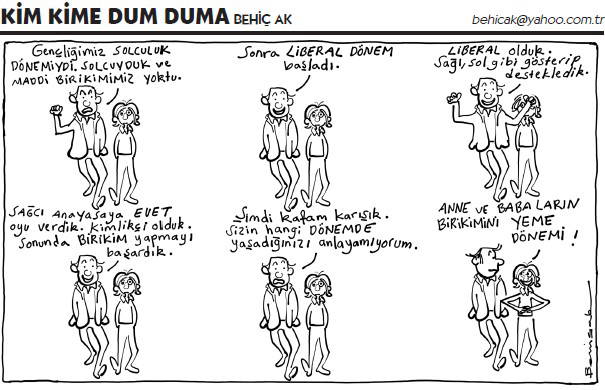 KİM KİME DUM DUMA BEHİÇ AK
behicak@yahoo.com.tr
Gençliğimiz SOLCULUK
DÖNEMİYDİ. SOLCUYDUK ve
MADDİ BİRİKİMİMİZ YOKTU.
Sonra LİBERAL DÖNEM
başladı.
LİBERAL olduk.
Sağı, sol gibi gösterip
destekledik.
SAĞCI Anayasaya EVET
oyu verdik. Kimlikçi olduk.
Sonunda BİRİKİM yapmayı
başardık.
Şimdi kafam karışık.
Sizin hangi DÖNEMDE
yaşadığınızı anlayamıyorum.
ANNE ve BABALARIN
BİRİKİMİNİ YEME
DÖNEMİ!